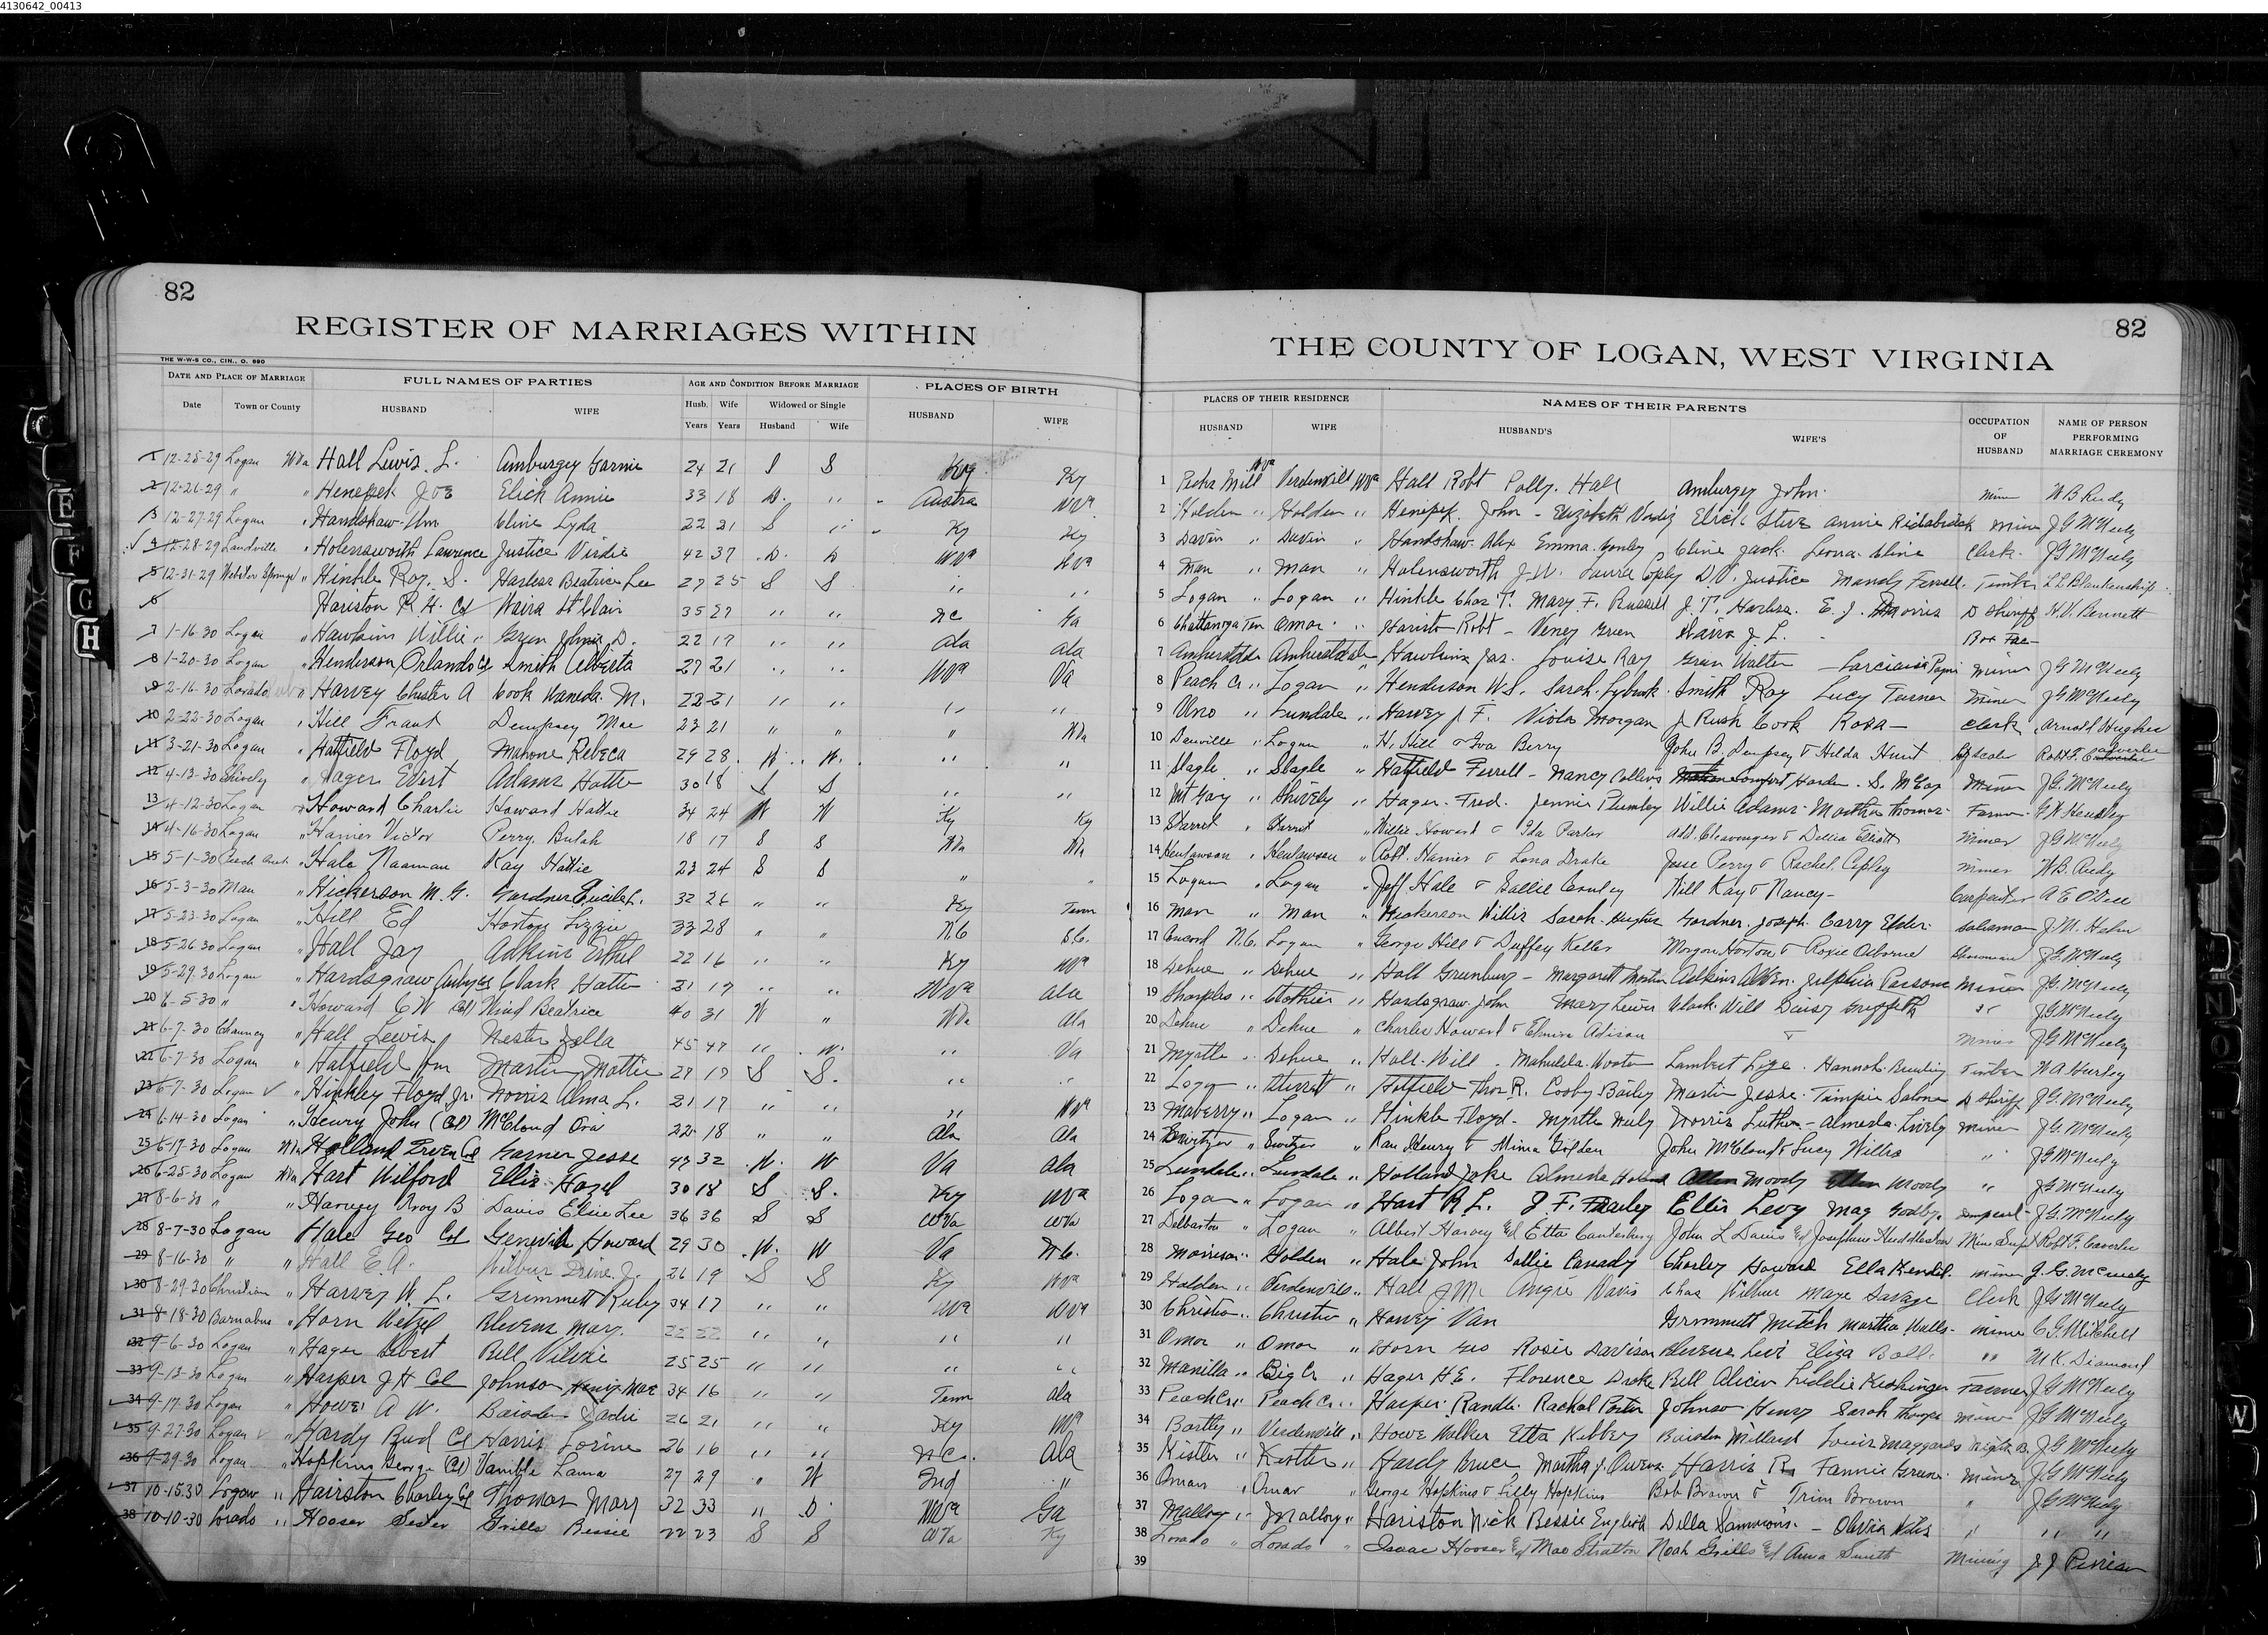 4130642_00413
82
REGISTER OF MARRIAGES WITHIN
THE W-W-S CO., CIN., O. 890
DATE AND PLACE OF MARRIAGE FULL NAMES OF PARTIES AGE AND CONDITION BEFORE MARRIAGE PLACES OF BIRTH
Date Town or County HUSBAND WIFE Husb. Wife Widowed or Single HUSBAND WIFE
Years Years Husband Wife
1 12-25-29 Logan WVa Hall Lewis. L. Amburgey Garnie 24 21 S S Ky Ky
2 12-26-29 " " Henepek Joe Elick Annie 33 18 D. " Austra WVa
3 12-27-29 Logan " Handshaw Wm Cline Lyda 22 21 S " Ky Ky
4 12-28-29 Landville " Holensworth Lawrence Justice Virdie 42 37 D. D WVa WVa
5 12-31-29 Webster Springs " Hinkle Roy. S. Harless Beatrice Lee 27 25 S S " "
6 Hariston R. H. Col Waira St Clair 35 27 " " NC Ga
7 1-16-30 Logan " Hawkins Willie Green Johnie D. 22 17 " " Ala Ala
8 1-20-30 Logan " Henderson Orlando Col Smith Alberta 27 21 " " WVa Va
9 2-16-30 Lorado " Harvey Chester A Cook Waneda M. 22 21 " " " "
10 2-22-30 Logan " Hill Frank Dempsey Mae 23 21 " " " WVa
11 3-21-30 Logan " Hatfield Floyd Mahone Rebeca 29 28 W. W. " "
12 4-13-30 Shively " Hager Evert Adams Hattie 30 18 S S " "
13 4-12-30 Logan " Howard Charlie Howard Hattie 34 24 W W Ky Ky
14 4-16-30 Logan " Hanier Victor Perry, Bulah 18 17 S S WVa WVa
15 5-1-30 Peach Creek " Hale Naaman Kay Hattie 23 24 S S " "
16 5-3-30 Man " Hickerson M. G. Gardner Lucile L. 32 26 " " Ky Tenn
17 5-23-30 Logan " Hill Ed Horton Lizzie 33 28 " " N.C. S.C.
18 5-26-30 Logan " Hall Jay Adkins Esthel 22 16 " " Ky WVa
19 5-29-30 Logan " Hardsgraw Col Clark Hattie 21 19 " " WVa Ala
20 6-5-30 " " Howard C W (Col) Wind Beatrice 40 31 W " WVa Ala
21 6-7-30 Chauncy " Hall Lewis Nester Zella 45 47 " W. " Va
22 6-7-30 Logan " Hatfield Jim Martin Mattie 27 17 S S. " "
23 6-7-30 Logan " Hinkley Floyd Jr. Norris Alma L. 21 17 " " " WVa
24 6-14-30 Logan " Henry John (Col) McCloud Ora 22 18 " " Ala Ala
25 6-17-30 Logan WVa Holland Irven Col Garner Jesse 47 32 W. W Va Ala
26 6-25-30 Logan WVa Hart Wilford Ellis Hazel 30 18 S S. Ky WVa
27 8-6-30 " " Harvey Troy B Davis Elsie Lee 36 36 S S WVa WVa
28 8-7-30 Logan Hale Geo Col Howard 29 30 W. W Va N.C.
29 8-16-30 " " Hall E. A. Wilbur Irene J. 26 19 S S Ky WVa
30 8-29-30 Christian " Harvey W. L. Grimmett Ruby 34 17 " " WVa WVa
31 8-18-30 Barnabus " Horn Wetzel Blevens Mary. 22 22 " " " "
32 9-6-30 Logan " Hager Elbert Bell Vilvie 25 25 " " " "
33 9-13-30 Logan " Harper J H Col Johnson Mae 34 16 " " Tenn Ala
34 9-17-30 Logan " Howe A W. Baisden Sadie 26 21 " " Ky WVa
35 9-27-30 Logan " Hardy Bud Col Harris Lorine 26 16 " " NC. Ala
36 9-29-30 Logan " Hopkins George (Col) Vanible Lama 27 29 " W Ind "
37 10-15-30 Logan " Hairston Charley Col Thomas Mary 32 33 " D. WVa Ga
38 10-10-30 Lorado " Hooser Sester Grills Bessie 22 23 S S WVa Ky
82
THE COUNTY OF LOGAN, WEST VIRGINIA
PLACES OF THEIR RESIDENCE NAMES OF THEIR PARENTS OCCUPATION OF HUSBAND NAME OF PERSON PERFORMING MARRIAGE CEREMONY
HUSBAND WIFE HUSBAND'S WIFE'S
1 Mill WVa Verdenvill WVa Hall Robt Polly. Hall Amburgey John. Miner W B Rudy
2 Holden " Holden " Henepek. John - Elizabeth Elick Steve Annie Miner J G McNeely
3 Davin " Davin " Handshaw Alex Emma. Conley Cline Jack. Leona Cline Clerk. J G McNeely
4 Man " Man " Holensworth J. W. Laura Cply D. V. Justice Mandy Ferrell. Timber L L Blankenship
5 Logan " Logan " Hinkle Chas T. Mary F. Russell J. T. Harless. E. J. Morris D Sheriff H. V. Bennett
6 Chattanoga Ten Omar " Haristo Robt - Veney Green Waira J L.
7 Amherstdale Amherstdale " Hawkins Jas. Louise Ray Green Walter - Miner J G McNeely
8 Peach Cr " Logan " Henderson W S. Sarah. Smith Roy Lucy Turner Miner J G McNeely
9 Uno " Lundale " Harvey J. F. Viola Morgan J Rush Cook Rosa - Clerk Arnold Hughes
10 Danville " Logan " H. Hill & Iva Berry John B. Dempsey & Hilda Hunt Robt F. Caverlee
11 Slagle " Slagle " Hatfield Ferrell - Nancy Collins Comfort Harde. S. McCoy Miner J G. McNeely
12 Mt Gay " Shively " Hager. Fred. Jennie Plumley Willie Adams. Martha Thomas. Farmer. G W Hensley
13 " " Willie Howard & Ida Parker Add Cleavenger & Dellia Elliott Miner J G McNeely
14 Henlawson " Henlawson " Robt. Hanier & Lona Drake Jesse Perry & Rachel Copley Miner W. B. Rudy
15 Logan " Logan " Jeff Hale & Sallie Will Kay & Nancy- Carpenter A E O'Dell
16 Man " Man " Hickerson Willis Sarah. Hughes Gardner. Joseph. Carry Elder. Salesman J. M. Hahn
17 Concord N.C. Logan " George Hill & Duffey Keller Morgan Horton & Roxie Osborne Showman J G McNeely
18 Dehue " Dehue " Hall Greenburg - Margarett Adkins Parsons Miner J. G. McNeely
19 Sharples " Clothier " Hardsgraw. John Mary Lewis Clark. Will Daisy Griffeth " J G McNeely
20 Dehue " Dehue " Charles Howard & Elmira Adison & Miner J G McNeely
21 Myrtle " Dehue " Hall. Will. Mahulda. Wooten Lambert Lige. Hannah Timber W A Hurley
22 Logan " " Hatfield Thos. R. Cooby Bailey Martin Jesse. D Sheriff J. G. McNeely
23 Maberry " Logan " Hinkle Floyd. Myrtle Norris Luther - Almeda. Lively Miner J. G. McNeely
24 Switzer " Switzer " Henry & Minia Golden John McCloud & Lucy Willis " J G McNeely
25 Lundale " Lundale " Holland Jake Almeda Moody Moody " J G McNeely
26 Logan " Logan " Hart R. L. J. F. Ellis Levy Mag Godby. J. G. McNeely
27 Delbarton " Logan " Albert Harvey & Etta Canterbury John L Davis & Josephine Huddleston Mine Supt Robt F. Caverlee
28 Morrison " Holden " Hale John Sallie Canady Charley Howard Ella Kendel. Miner J. G. McNeely
29 Holden " Verdenville " Hall J M. Angie Davis Chas Wilbur Maye Savage Clerk J G McNeely
30 Christian " Christian " Harvey Van Grimmett Mitch Martha Walls. Miner C. G. Mitchell
31 Omar " Omar " Horn Geo Rosie Davison Blevens Levi Eliza Ball. " M. K. Diamond
32 Manilla " Big Cr " Hager H E. Florence Drake Bell Liddie Farmer J G McNeely
33 Peach Cr. " Peach Cr. " Harper Randle. Rachal Porter Johnson Henry Sarah Miner J G McNeely
34 Bartley " Verdenvill " Howe Walker Etta Kibbey Baisden Millard J G McNeely
35 Kistler " Kistler " Hardy Bruce, Martha J. Owens Harris R. Fannie Greene. Miner J G McNeely
36 Omar " Omar " George Hopkins & Lilly Hopkins Bob Brown & Trim Brown " J G McNeely
37 Mallory " Mallory " Hariston Nick Bessie English Della Sammons. - " " "
38 Lorado " Lorado " Isaac Hooser & Mae Stratton Noah Grills & Anna Smith Mining J J
39